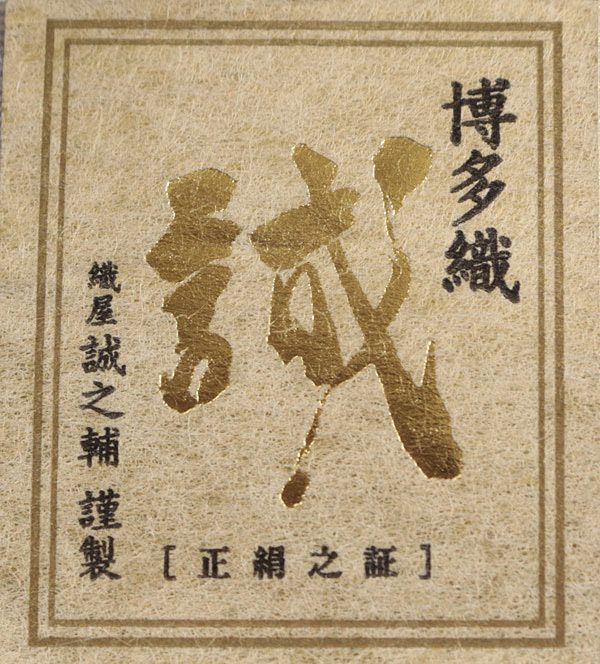 博多織
誠
織屋 誠之輔 謹製
[正絹之証]